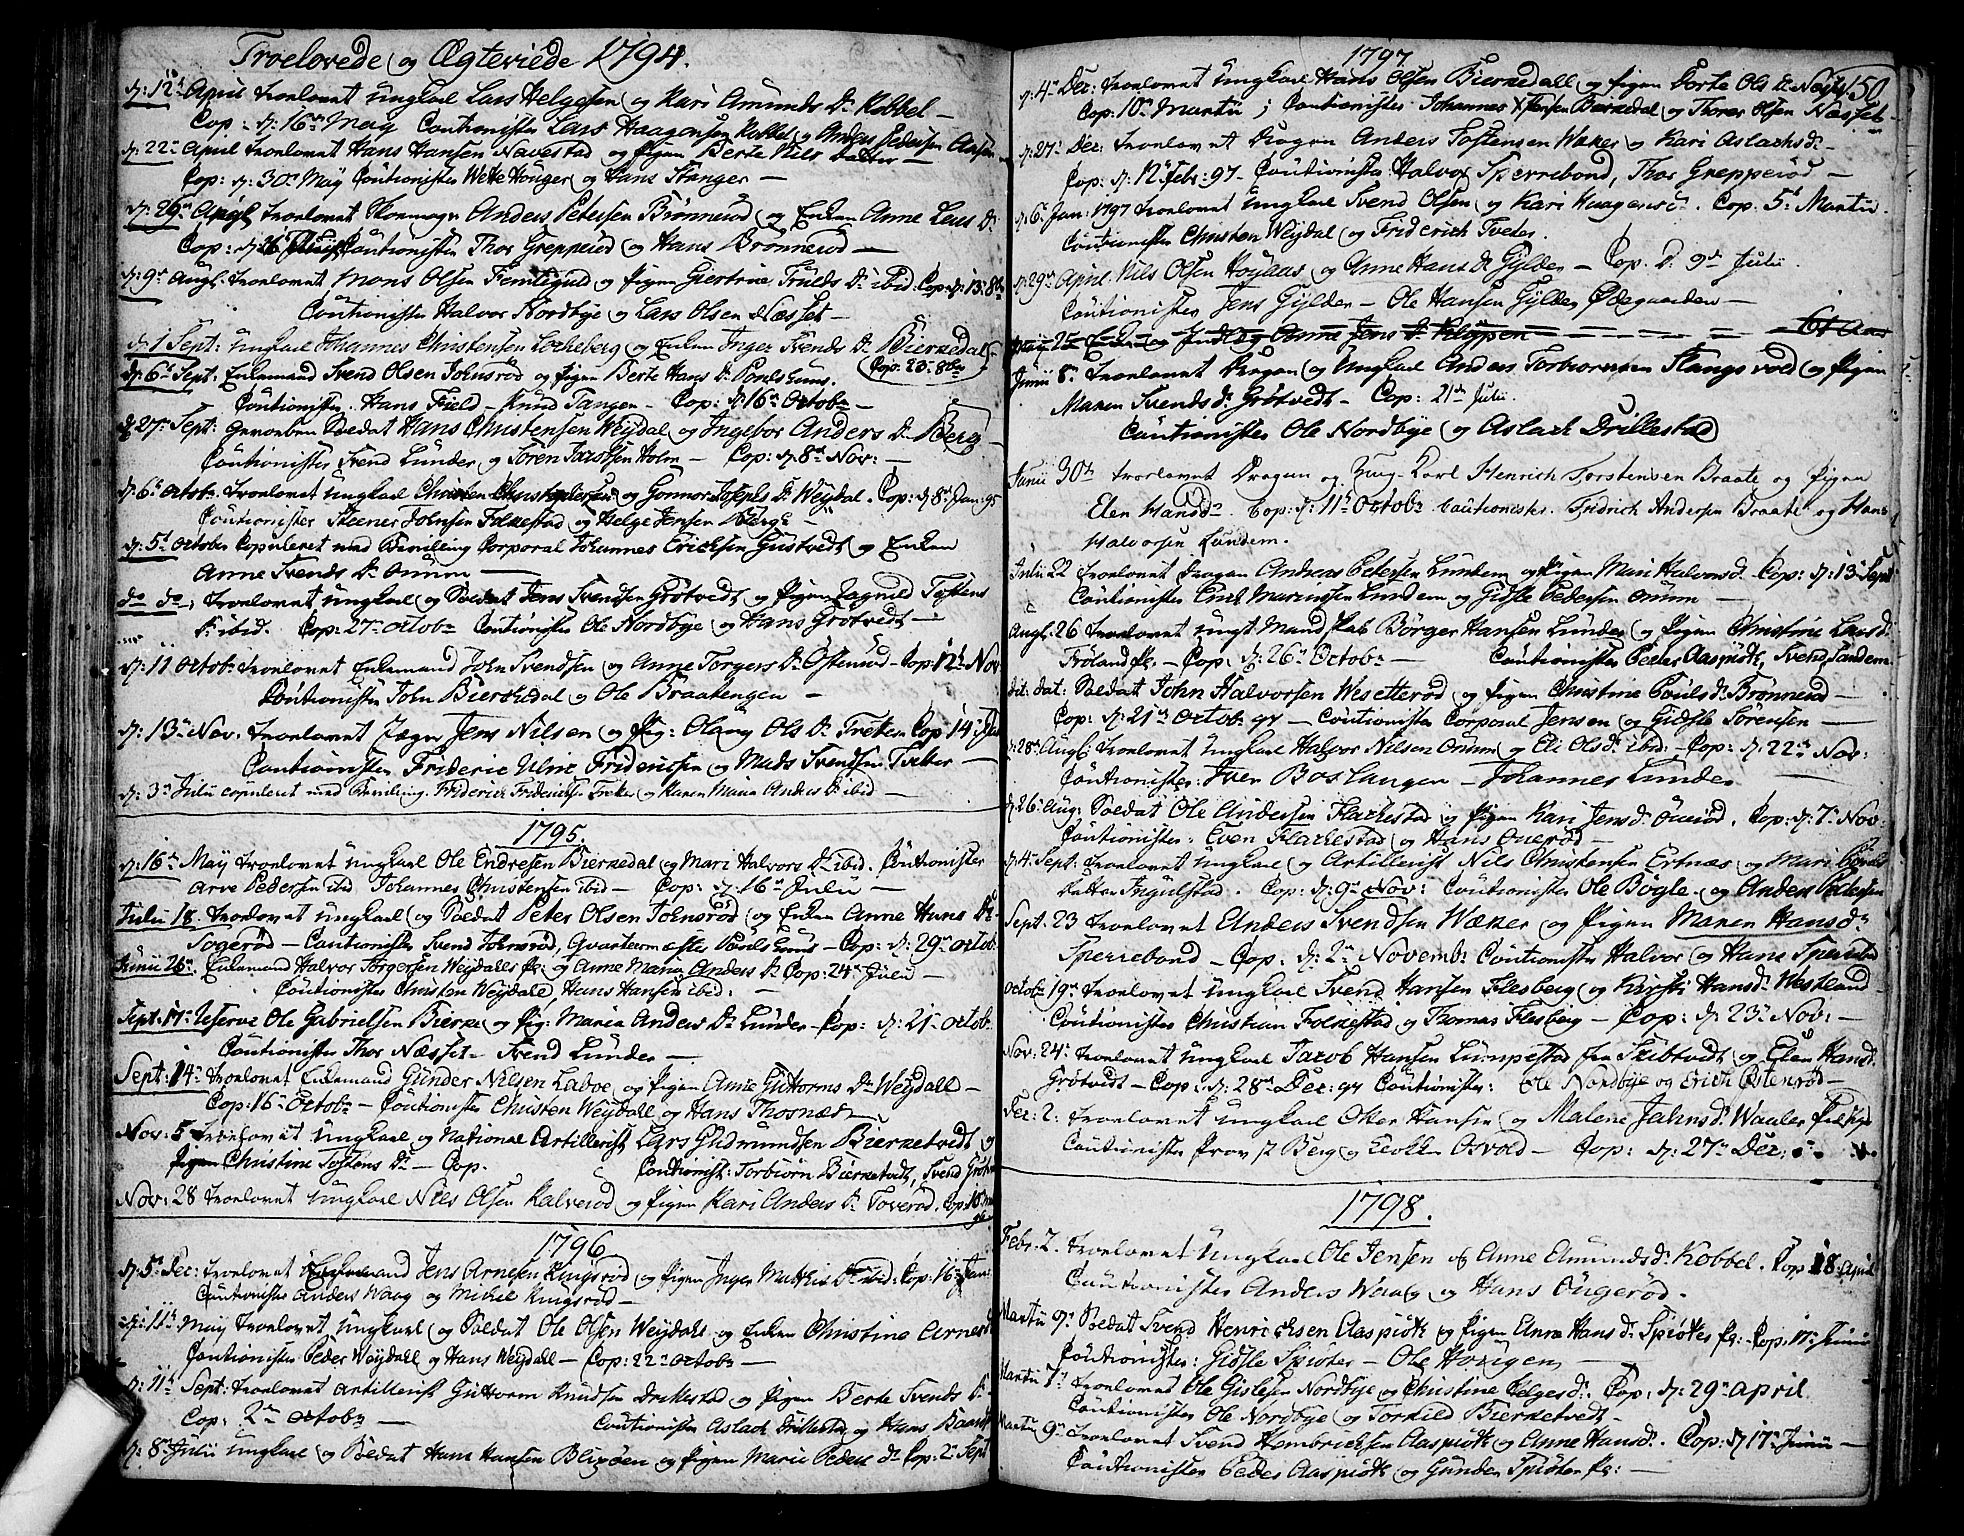 Troelovede og Ægteviede 1794.
d: 12te April troelovet Ungkarl Lars Helgesen og Kari Amunds Dr Kobbel -
Cop. d: 16de May Coutionister Lars Haagensen Kobbel og Anders Pedersen
d: 22de April troelovet Hans Hansen Navestad og Pigen Berte Nils datter -
Cop: d: 30te May Coutionister Wette Houger og Hans Stanger -
d: 26de April troelovet Anders Petersen Brønnerød og Enken Anne Lars Dr
Cop: d: 26 Coutionister Thor Grepperød og Hans Brønnerød -
d: 9de Augl. troelovet Mons Olsen Femtegud og Pigen Giertrue Trulds Dr ibid. Cop: d: 13: 8br
Coutionister Halvor Nordbye og Lars Olsen Næsset -
d: 1 Sept: Ungkarl Johannes Christensen Locheberg og Enken Inger Svends Dr Bierkedal
d: 6te Sept: Enkemand Svend Olsen Johnsrød og Pigen Berte Hans Dr Poulshuus. Cop: 23de 8br
Coutionister. Hans Field - Knud Tangen - Cop: d: 16de Octobr -
d: 27de Sept: Gevorben Soldat Hans Christensen Weydal og Ingebor Anders Dr Berg
Coutionister Svend Lunder og Sören Jacobsen Holm - Cop: d: 8de Nov: -
d: 6te Octobr. troelovet Ungkarl Christen og Gonnor Josephs Dr Weydal. Cop: d: 8de Jan: 95
Coutionister Steener Johnsen Folkestad og Helge Jensen Berge -
d: 5te October Copuleret med Bevilling Corporal Johannes Ericksen Gustvedt og Enken
Anne Svends Dr Omum -
do do, troelovet Ungkarl og Soldat Jens Svendsen Grøtvedt og Pigen Ragnild Tostens
Dr ibid. Cop: 27de Octobr Coutionister Ole Nordbye og Hans Grøtvedt -
d: 11 Octobr troelovet Enkemand John Svendsen og Anne Torgers Dr Østenrud - Cop: 12te Nov
Coutionister John Bierkedal og Ole Braatengen -
d: 13de Nov. troelovet Jæger Jens Nilsen og Pig: Olaug Ols Dr Treker Cop 14de
Coutionister Frideric Ulric Fridericksen og Mads Svendsen Tveter -
d: 3de Julii copuleret med Bevilling. Friderich Fridericksen og Karen Maria Anders Dr ibid -
1795.
d: 16de May troelovet Ungkarl Ole Endresen Bierkedal og Mari Halvors Dr ibid. Coutionister
Arve Pedersen ibid Johannes Christensen ibid - Cop: d: 16de Julii -
Julii 18. troelovet Ungkarl og Soldat Peter Olsen Johnsrød og Enken Anne Hans Dr
Sogerød - Coutionister Svend Johnsrød, Qvarteermester Poulshuus - Cop: d: 29de Octobr
Junii 26de. Enkemand Halvor Jörgersen Weydahls og Anne Maria Anders Dr Cop: 24de Julii -
Coutionister Christen Weydahl, Hans Hansen ibid. -
Sept: 11te reserve Ole Gabrielsen Bierke og Pig: Maria Anders Dr Lunder - Cop: d: 21de Octobr
Coutionister Thor Næsset - Svend Lunder -
Sept: 14de troelovet Enkemand Gunder Nilsen Laboe og Pigen Anne Guttorms Dr Weydahl -
Cop: 16de Octobr - Coutionister Christen Weydahl og Hans Thosnæs
Nov: 5 troelovet Ungkarl og National Artillerist Lars Gudmundsen Bierketvedt og
Pigen Christine Tostens Dr - Cop. Coutionist: Torbiorn Bierketvedt, Svend Grøtvedt
Nov: 28 troelovet Ungkarl Niels Olsen Kalverød og Pigen Kari Anders Dr Toverød. Cop:
1796
d: 5te Dec: troelovet Enkemand Jens Arnesen Kingsrød og Pigen Inger Mathis Dr ibid: Cop: 16de Jan:
Coutionister Anders Waag og Mikel Kingsrød -
d: 11te May troelovet Ungkarl og Soldat Ole Olsen Weydahl og Enken Christine Arnes
Coutionister Peder Weydahl og Hans Weydahl - Cop: 22de Octobr -
d: 11te Sept: troelovet Artillerist Guttorm Knudsen Drillestad og Pigen Berte Svends Dr
Cop: 2den Octobr - Coutionister Aslach Drillestad og Hans
d: 8de Julii Ungkarl og Soldat Hans Hansen Blixøen og Pigen Marie Peders Dr Cop: 2den Sept
1797.
150
d: 4de Dec: troelovet Ungkarl Hans Olsen Bierkedall og Pigen Dorte Ols Dr
Cop: 10de Martii; Coutionister Johannes Jensen Bierkedal og Thorer Olsen Næsset
d: 27de Dec: troelovet Dragon Anders Tostensen Waker og Kari Aslachs Dr -
Cop: d: 12te Febr: 97 - Coutionister Halvor Sperrebond, Thor Grepperød -
d: 6te Jan: 1797 troelovet Ungkarl Svend Olsen og Kari Haagens Dr. Cop. 5te Martii.
Coutionister Christen Weydal og Friderich Tveter.
d: 29de April. Nils Olsen Hoylaas og Anne Hans Dr Gylder - Cop. D. 9de Julii.
Coutionister Jens Gylder - Ole Hansen Gylder Ødegaarden -
25 Anna Jens Dr Kløppen 61 Aar
Junii 8de troelovet Dragon og Ungkarl Anders Torbiornsen Stangsvold og Pigen
Maren Svends Dr Grøtvedt - Cop: 21de Julii.
Coutionister Ole Nordbye og Aslach Drillestad
Junii 30te troelovet Dragon og Ung-Karl Henrich Torstensen Braate og Pigen
Elen Hansdr. Cop: d: 11te Octobr Coutionister. Fridrich Andersen Braate og Hans
Halvorsen Lundem.
Julii 22 troelovet Dragon Andreas Petersen Lundem og Pigen Mari Halvorsdr. Cop: d: 13de Sept
Coutionister Erick Lundem og Gidsle Pedersen Omum -
Augl: 26 troelovet Ungt Mandskab Börger Hansen Lunder og Pigen Christine Larsdr
Frøland - Cop: d: 26de Octobr - Coutionister Peder Aaspiotk, Svend Sandem.
dit. dat: Soldat John Halvorsen Wesetterød og Pigen Christine Poulsdr. Brønnerød -
Cop: d: 21de Octobr 97 - Coutionister Corporal Jensen og Gidsle Sørensen -
d: 28de Augl: troelovet Ungkarl Halvor Nilsen Omum og Eli Olsdr. ibid. - Cop: d: 22de Nov:
Coutionister: Iver Boslangen - Johannes Lunder -
d: 26: Aug: Soldat Ole Andersen Flackestad og Pigen Kari Jensdr. Cop: d: 7de Nov
Coutionister: Even Flackestad og Hans Ouerød -
d: 4: Sept: troelovet Ungkarl og Artillerist Nils Christensen Ertnæs og Mari
datter Ingulstad. Cop: d: 9de Nov: Coutionister Ole Bøgle og Anders Pedersen
Sept: 23 troelovet Anders Svendsen Wæker og Pigen Maren Hansdr
Sperrebond - Cop: d: 2den Novembr Coutionister Halvor og Hans Sperrebond
Octobr 19de troelovet Ungkarl Svend Hansen Flesberg og Kirsti Hansdr. Westland
Coutionister Christian Folkestad og Thomas Flesberg - Cop: d: 23de Nov: -
Nov: 24de troelovet Ungkarl Jacob Hansen Lumpestad fra Skibtvedt og Elen Hansdr.
Grøtvedt - Cop: d: 28de Dec: 97 Coutionister: Ole Nordbye og Erich Østenrød -
Dec: 2: troelovet Ungkarl Otter Hansen og Malene Jahnsdr. Wauler
Coutionister Provst Berg og Osvold - Cop: d: 27de Dec:
1798.
Febr: 2. troelovet Ungkarl Ole Jensen og Anne Amundsdr. Kobbel. Cop. 18: April
Coutionister Anders Waag og Hans Öugerød.
Martii 9de Soldat Svend Henricksen Aaspiotk og Pigen Anne Hansdr. Cop. 17de Junii
Coutionister: Gidsle Spiøter - Ole Horrigen -
Martii 7de troelovet Ole Gislesen Nordbye og Christine Helgesdr. Cop: d: 29de April.
Coutionister Ole Nordbye og Torkild Bierketvedt -
Martii 9de troelovet Svend Hembricksen Aaspiotk og Anne Hansdr. Cop: d 17de Junii -
Coutionister Peder Aaspiotk og Gunder Spiøter -